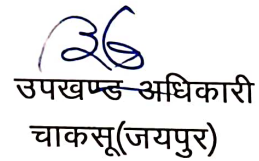 उपखण्ड अधिकारी
चाकसू(जयपुर)